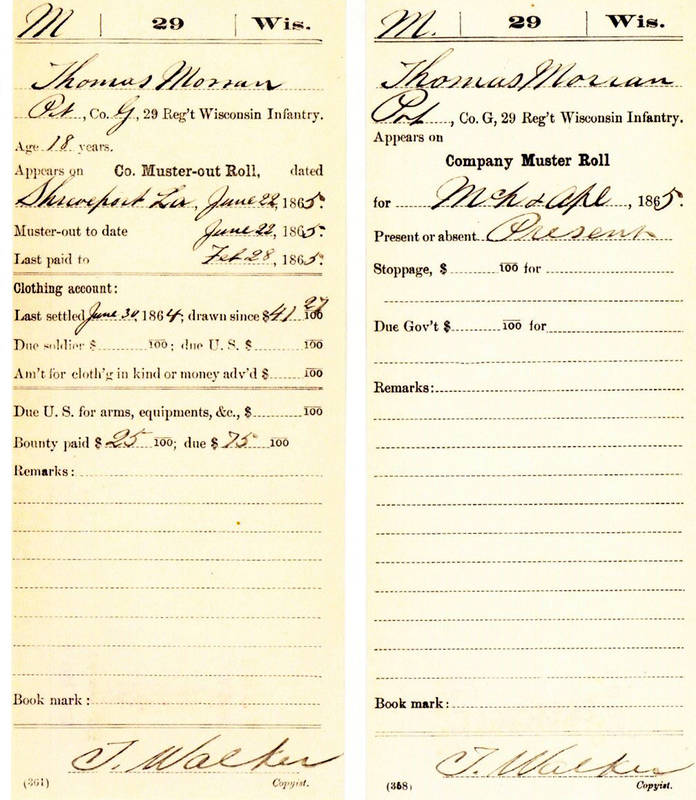 M | 29 | Wis.
Thomas Morran
Pvt, Co. G, 29 Reg't Wisconsin Infantry.
Age 18 years.
Appears on Co. Muster-out Roll, dated
Shreveport La, June 22, 1865.
Muster-out to date June 22, 1865.
Last paid to Feb 28, 1865.
Clothing account:
Last settled June 30, 1864; drawn since $41 27/100
Due soldier $ /100; due U. S. $ /100
Am't for cloth'g in kind or money adv'd $ /100
Due U. S. for arms, equipments, &c., $ /100
Bounty paid $ 25 /100; due $ 75 /100
Remarks:
Book mark:
T. Walker
(361) Copyist.
M. | 29 | Wis.
Thomas Morran
Pvt, Co. G, 29 Reg't Wisconsin Infantry.
Appears on
Company Muster Roll
for Mch & Apl, 1865.
Present or absent Present
Stoppage, $ /100 for
Due Gov't $ /100 for
Remarks:
Book mark:
T. Walker
(358) Copyist.